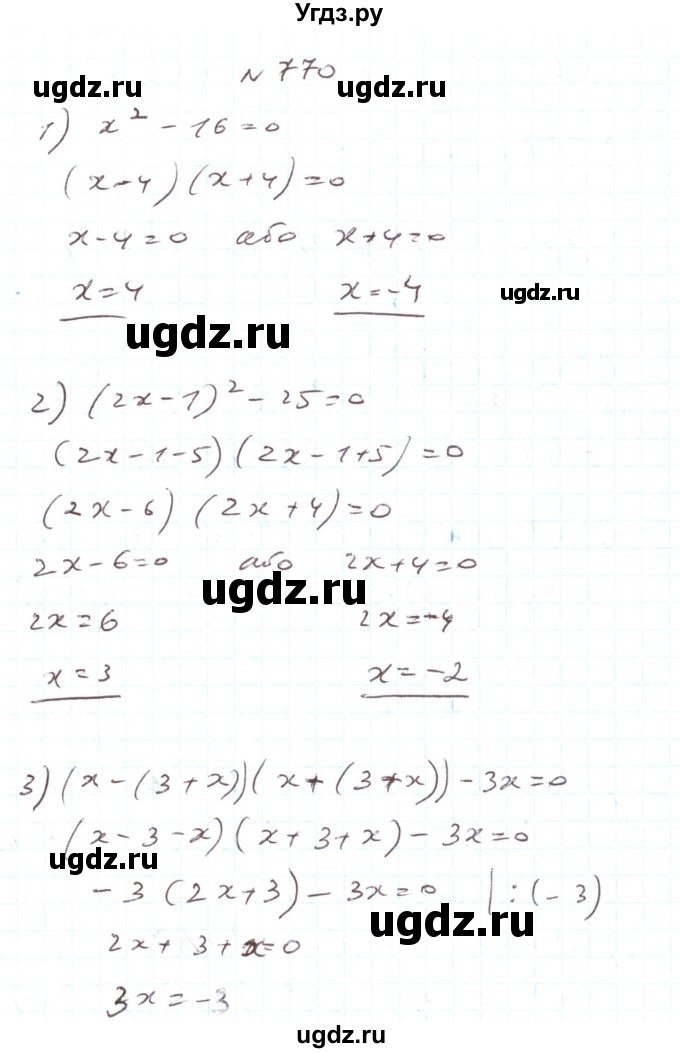 Угдз.ру
№ 770
ugdz.ru ugdz.ru
1) x² - 16 = 0
(x - 4) (x + 4) = 0
x - 4 = 0 або x + 4 = 0
x = 4 x = -4 ugdz.ru
ugdz.ru
2) (2x - 1)² - 25 = 0
(2x - 1 - 5) (2x - 1 + 5) = 0
(2x - 6) (2x + 4) = 0
2x - 6 = 0 або 2x + 4 = 0
ugdz.ru
2x = 6 2x = -4
x = 3 x = -2
3) (x - (3 + x)) (x + (3 + x)) - 3x = 0
(x - 3 - x) (x + 3 + x) - 3x = 0
ugdz.ru
- 3 (2x + 3) - 3x = 0 | : (- 3)
ugdz.ru
2x + 3 + x = 0
3x = -3
ugdz.ru